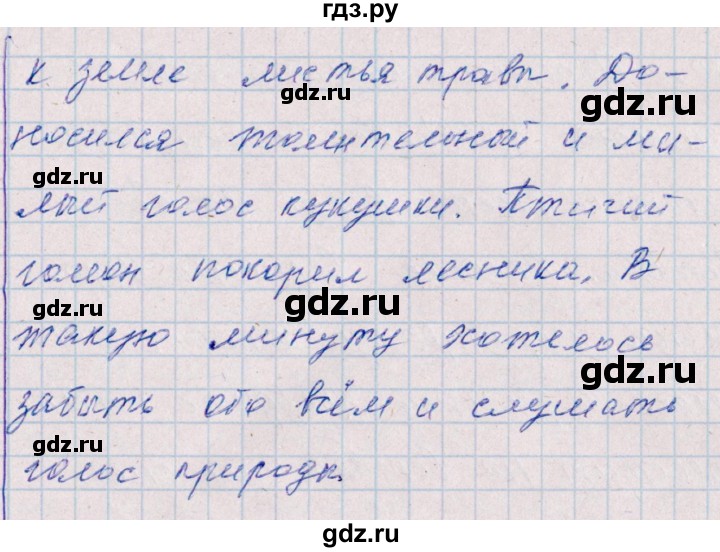 гдз.ру
к земле листья травы. До-
gdz.ru
gdz.ru
носился томительной и ми-
gdz.ru
лый голос кукушки. Птичий
gdz.ru
гомон покорил лесника. В
gdz.ru
gdz.ru
такую минуту хотелось
gdz.ru
забыть обо всём и слушать
gdz.ru
gdz.ru
голос природы.
gdz.ru